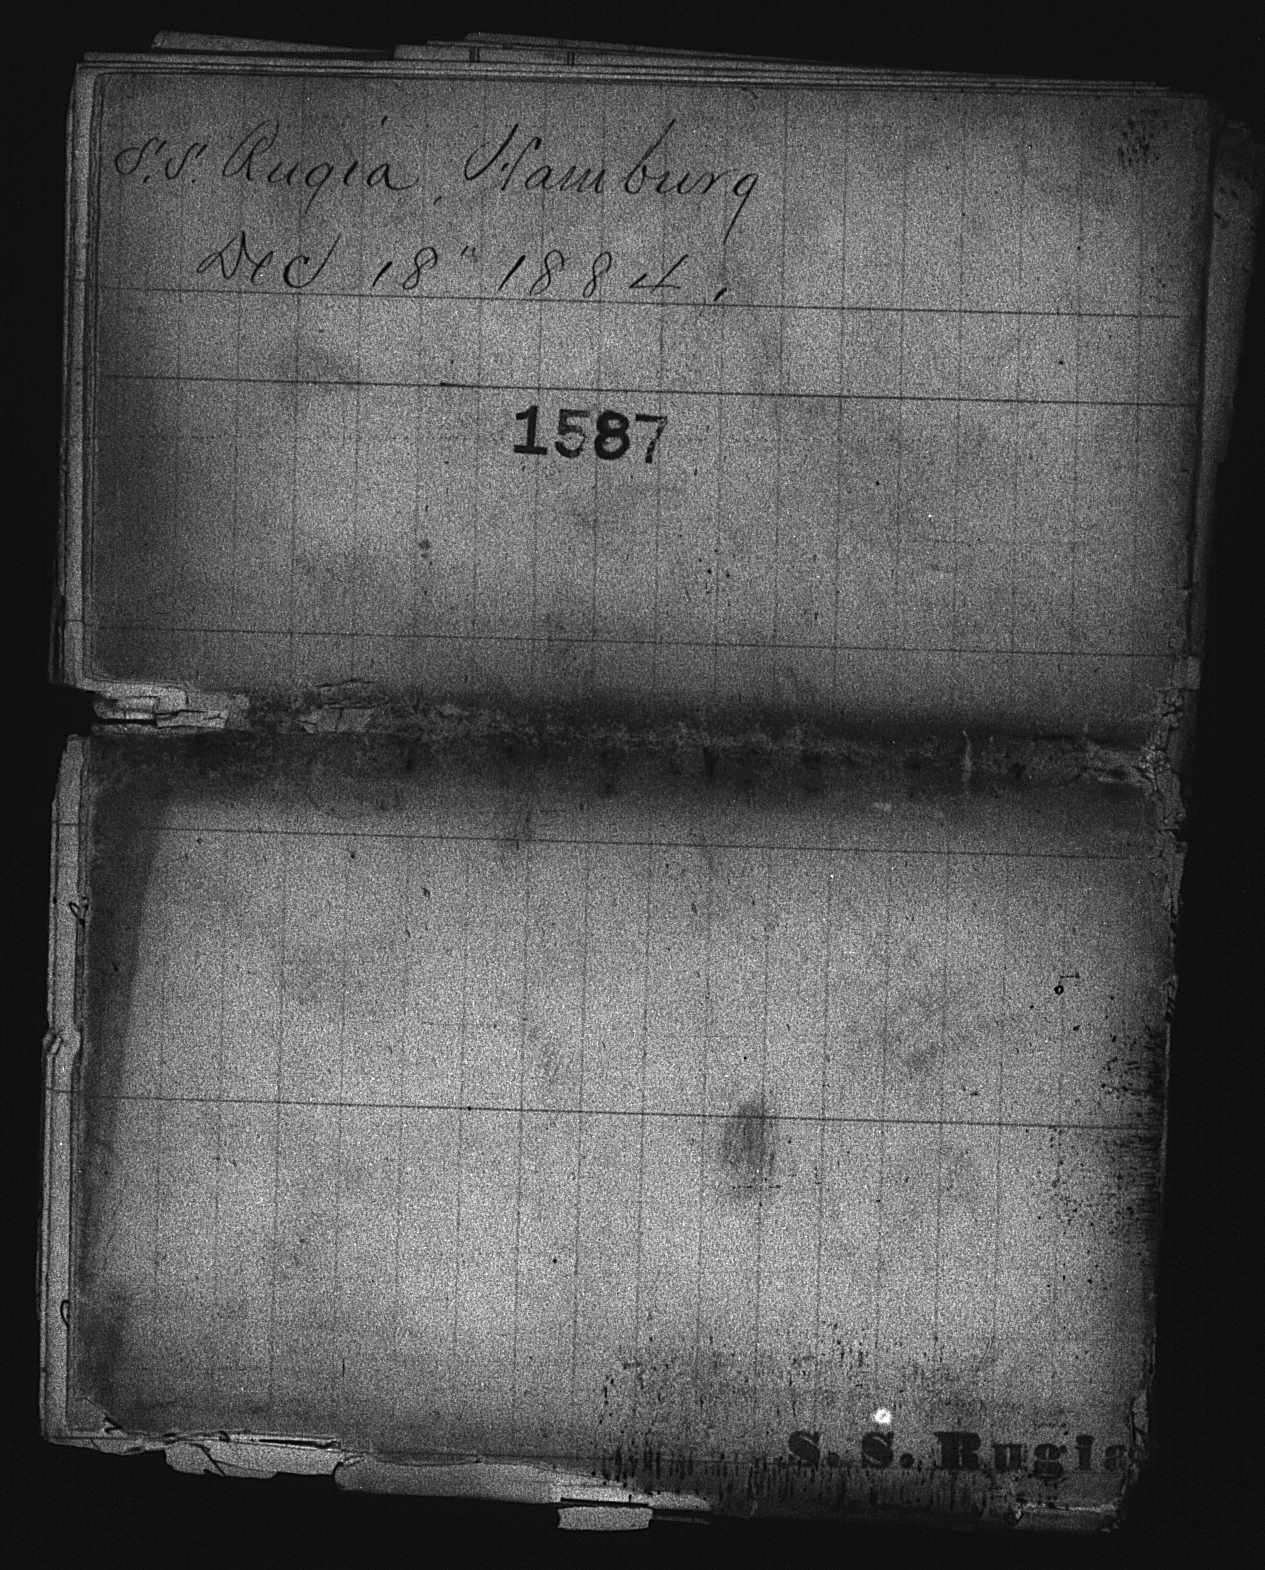 S.S. Rugia, Hamburg
Dec 18" 1884.
1587
S. S. Rugia